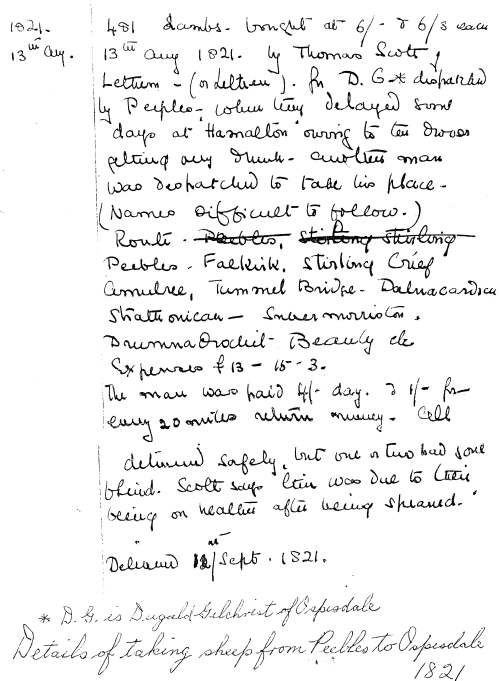 1821. 481 Lambs - bought at 6/- & 6/8 each
13th Aug. 13th Aug 1821. by Thomas Scott,
Lethem - (or Lethen). for D. G * dispatched
by Peebles, when they delayed some
days at Hamalton owing to the drover
getting very drunk - another man
was despatched to take his place -
(Names difficult to follow.)
Route - Peebles, Stirling Stirling
Peebles - Falkirk, Stirling Crief
Amulree, Tummel Bridge - Dalnacardich
Strathonican - Invermorriston,
Drumnadrochit - Beauly etc
Expenses £13 - 15 - 3.
The man was paid 4/- day. & 1/- for
every 20 miles return money - Cell
delivered safely, but one or two had sore
blind. Scott says this was due to their
being on heather after being speaned.
Delivered 12th/Sept. 1821.
* D.G. is Dugald Gilchrist of Ospisdale
Details of taking sheep from Peebles to Ospisdale
1821